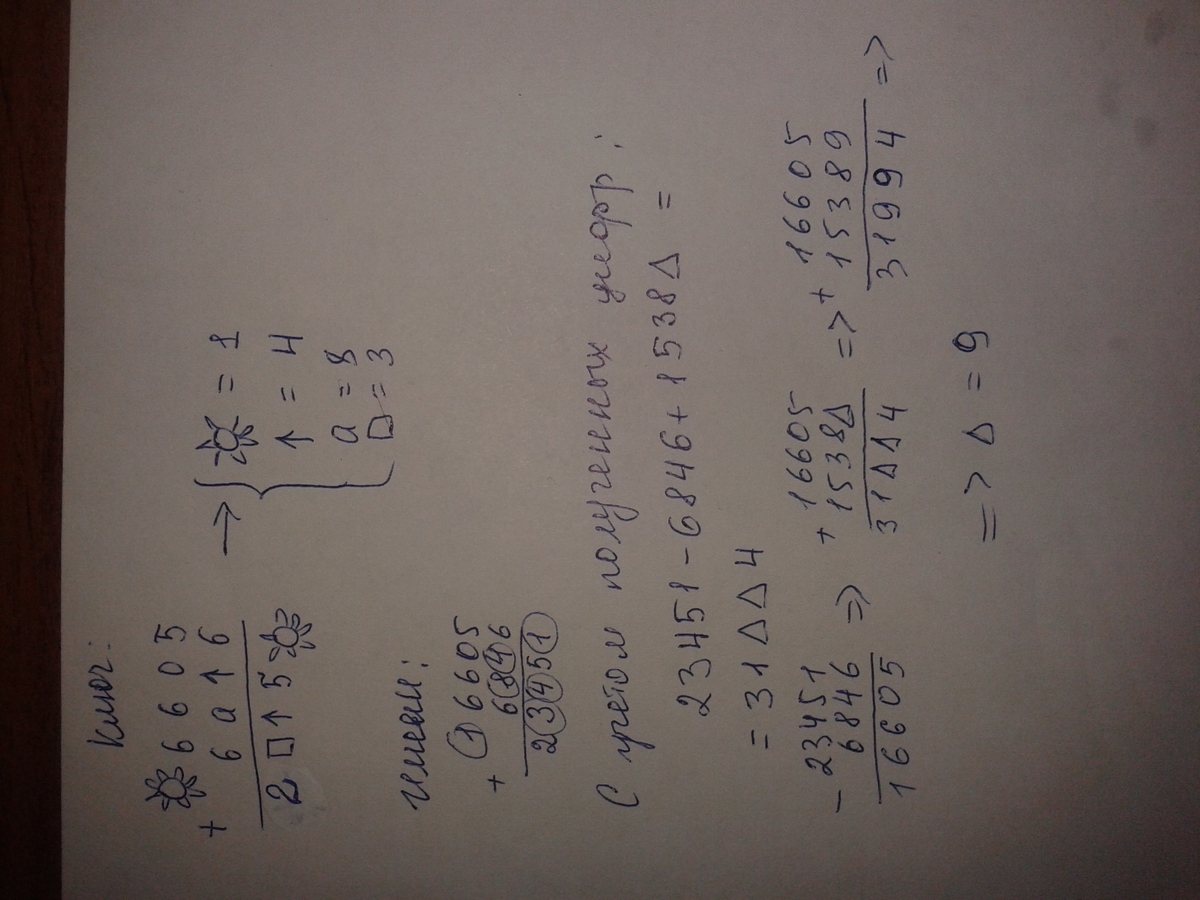 Ключ:
+ ☼ 6 6 0 5
6 а ↑ 6
2 □ ↑ 5 ☼
→ { ☼ = 1
↑ = 4
а = 8
□ = 3
Имеем:
+ 1 6 6 0 5
6 8 4 6
2 3 4 5 1
С учетом полученных цифр:
23451 - 6846 + 1538Δ =
= 31ΔΔ4
- 23451
6846
16605
=>
+ 16605
1538Δ
31ΔΔ4
=>
+ 16605
15389
31994
=>
=> Δ = 9